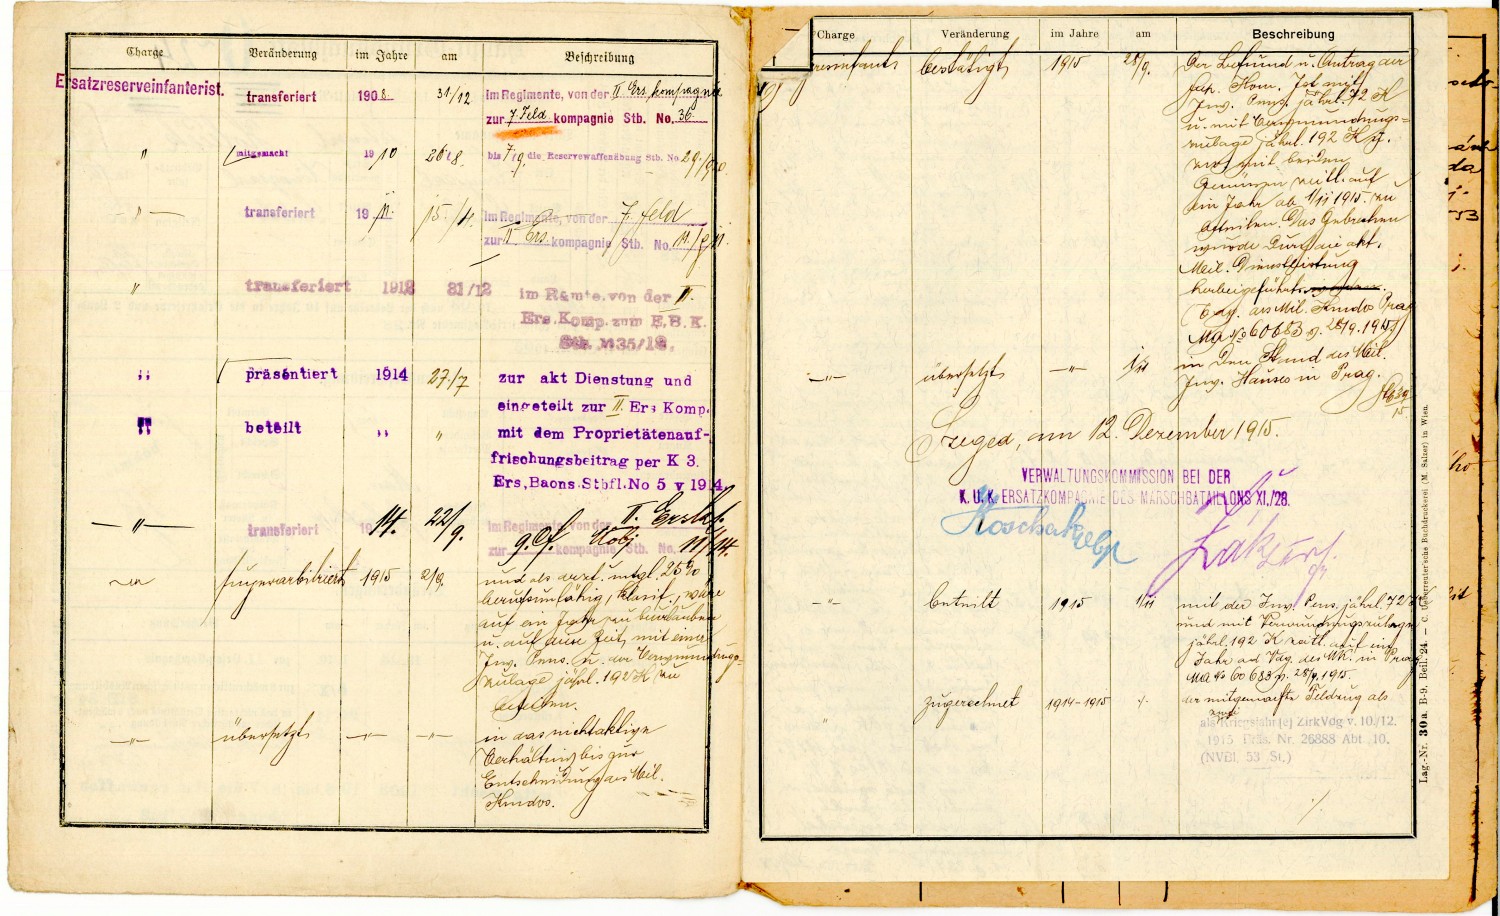 Charge Veränderung im Jahre am Beschreibung
Ersatzreserveinfanterist. transferiert 1908. 31/12 im Regimente, von der II Ers. kompagnie
zur 7. Feld kompagnie Stb. No. 36.
" mitgemacht 1910 20/8 bis 7/9. die Reservewaffenübung Stb. No. 29./9 10
" transferiert 1911. 15./4. im Regimente, von der 7. Feld
zur II Ers. kompagnie Stb. No. 11./
" transferiert 1912 31/12 im Rgmte. von der II.
Ers. Komp. zum E.B.K.
Stb. No 35/12.
" präsentiert 1914 27./7 zur akt Dienstung und
eingeteilt zur II. Ers Komp.
" beteilt " " mit dem Proprietätenauf-
frischungsbeitrag per K 3.
Ers. Baons. Stbfl. No 5 v 1914.
" transferiert 1914. 22/9. im Regimente, von der II. Ers
zur kompagnie Stb. No. 11/14.
" superarbitriert 1915 2/9. und als
berufsunfähig, klassif., wäre
auf ein Jahr zu beurlauben
u. auf diese Zeit mit einer
Inv. Pens. u. der Verwundungs-
zulage jährl. 192 K zu
beteilen.
" übersetzt " " in das nichtaktive
Verhältnis bis zur
Entscheidung des Mil.
Kmdos.
Charge Veränderung im Jahre am Beschreibung
bestätigt 1915 28/9. Der Befund u. Antrag der
Sup. Kom. Ist mit
Inv. Pens. jährl. 72 K
u. mit Verwundungs-
zulage jährl. 192 K
auf
ein Jahr ab 1/11 1915. zu
beteilen. Das Gebrechen
wurde durch die akt.
Mil. Dienstleistung
herbeigeführt
Erg. des Mil. Kmdo Prag
MA No 60683 v. 28/9. 1915.
" übersetzt " 1/11 in den Stand des Mil.
Inv. Hauses in Prag.
Szeged, am 12. Dezember 1915.
VERWALTUNGSKOMMISSION BEI DER
K. U. K. ERSATZKOMPAGNIE DES MARSCHBATAILLONS XI./28.
" beteilt 1915 1/11 mit der Inv. Pens. jährl. 72 K
und mit Verwundungszulage
jährl. 192 K zeitl. auf ein
Jahr Vdg. des MK. in Prag
MA No 60683 v. 28/9. 1915.
" zugerechnet 1914-1915 ·/. der mitgemachte Feldzug als
zwei
als Kriegsjahr(e) ZirkVdg v. 10./12.
1915 Präs. Nr. 26888 Abt. 10.
(NVBl. 53 St.)
Lag.-Nr. 30a. B-9. Beil. 24. — C. Ueberreuter'sche Buchdruckerei (M. Salzer) in Wien.